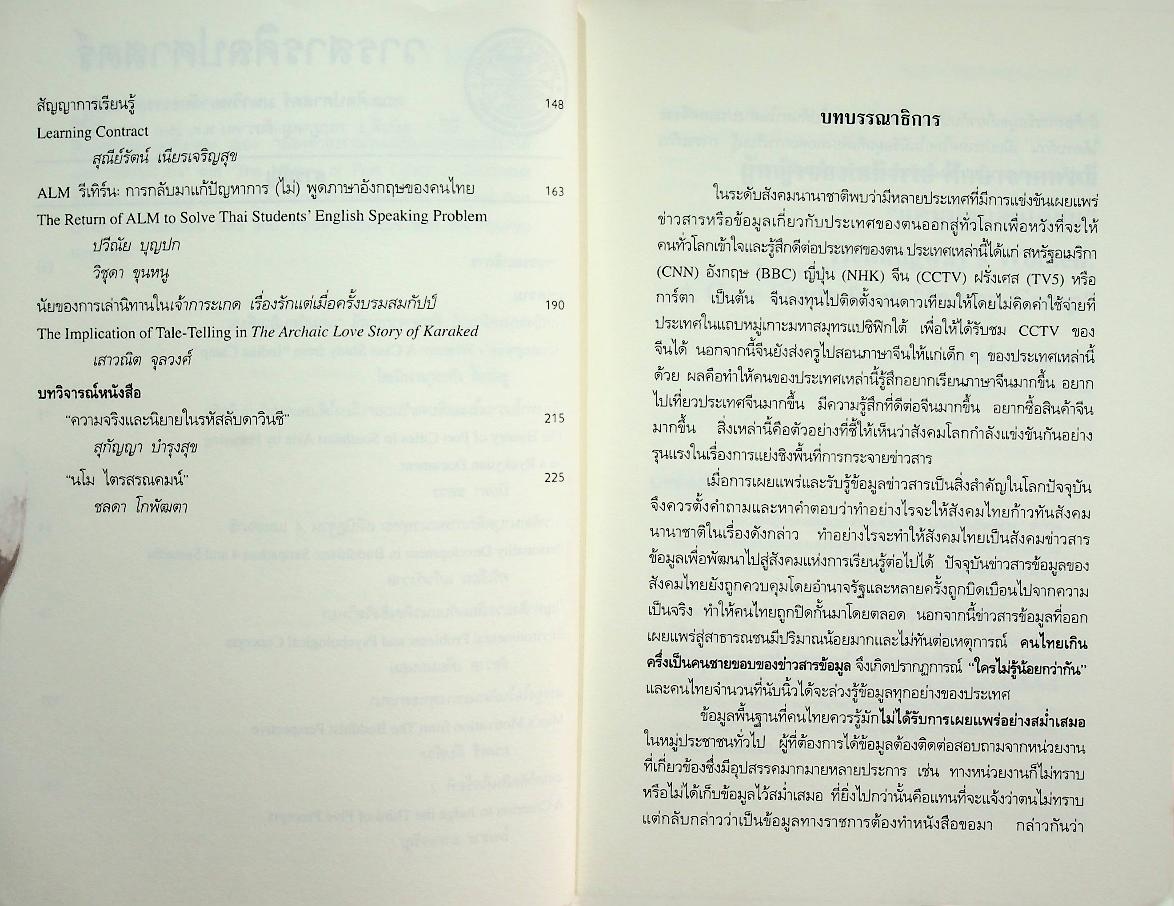 สัญญาการเรียนรู้ 148
Learning Contract
สุณีย์รัตน์ เนียรเจริญสุข
ALM รีเทิร์น: การกลับมาแก้ปัญหาการ (ไม่) พูดภาษาอังกฤษของคนไทย 163
The Return of ALM to Solve Thai Students' English Speaking Problem
ปวีณัย บุญปก
วิชุดา ขุนหนู
นัยของการเล่านิทานในเจ้าการะเกด เรื่องรักแต่เมื่อครั้งบรมสมกัปป์ 190
The Implication of Tale-Telling in The Archaic Love Story of Karaked
เสาวณิต จุลวงศ์
บทวิจารณ์หนังสือ
"ความจริงและนิยายในรหัสลับดาวินชี" 215
สุกัญญา บำรุงสุข
"นโม ไตรสรณคมน์" 225
ชลดา โกพัฒตา
บทบรรณาธิการ
ในระดับสังคมนานาชาติพบว่ามีหลายประเทศที่มีการแข่งขันเผยแพร่
ข่าวสารหรือข้อมูลเกี่ยวกับประเทศของตนออกสู่ทั่วโลกเพื่อหวังที่จะให้
คนทั่วโลกเข้าใจและรู้สึกดีต่อประเทศของตน ประเทศเหล่านี้ได้แก่ สหรัฐอเมริกา
(CNN) อังกฤษ (BBC) ญี่ปุ่น (NHK) จีน (CCTV) ฝรั่งเศส (TV5) หรือ
การ์ตา เป็นต้น จีนลงทุนไปติดตั้งจานดาวเทียมให้โดยไม่คิดค่าใช้จ่ายที่
ประเทศในแถบหมู่เกาะมหาสมุทรแปซิฟิกใต้ เพื่อให้ได้รับชม CCTV ของ
จีนได้ นอกจากนี้จีนยังส่งครูไปสอนภาษาจีนให้แก่เด็ก ๆ ของประเทศเหล่านี้
ด้วย ผลคือทำให้คนของประเทศเหล่านี้รู้สึกอยากเรียนภาษาจีนมากขึ้น อยาก
ไปเที่ยวประเทศจีนมากขึ้น มีความรู้สึกที่ดีต่อจีนมากขึ้น อยากซื้อสินค้าจีน
มากขึ้น สิ่งเหล่านี้คือตัวอย่างที่ชี้ให้เห็นว่าสังคมโลกกำลังแข่งขันกันอย่าง
รุนแรงในเรื่องการแย่งชิงพื้นที่การกระจายข่าวสาร
เมื่อการเผยแพร่และรับรู้ข้อมูลข่าวสารเป็นสิ่งสำคัญในโลกปัจจุบัน
จึงควรตั้งคำถามและหาคำตอบว่าทำอย่างไรจะให้สังคมไทยก้าวทันสังคม
นานาชาติในเรื่องดังกล่าว ทำอย่างไรจะทำให้สังคมไทยเป็นสังคมข่าวสาร
ข้อมูลเพื่อพัฒนาไปสู่สังคมแห่งการเรียนรู้ต่อไปได้ ปัจจุบันข่าวสารข้อมูลของ
สังคมไทยยังถูกควบคุมโดยอำนาจรัฐและหลายครั้งถูกบิดเบือนไปจากความ
เป็นจริง ทำให้คนไทยถูกปิดกั้นมาโดยตลอด นอกจากนี้ข่าวสารข้อมูลที่ออก
เผยแพร่สู่สาธารณชนมีปริมาณน้อยมากและไม่ทันต่อเหตุการณ์ คนไทยเกิน
ครึ่งเป็นคนชายขอบของข่าวสารข้อมูล จึงเกิดปรากฏการณ์ "ใครไม่รู้น้อยกว่ากัน"
และคนไทยจำนวนที่นับนิ้วได้จะล่วงรู้ข้อมูลทุกอย่างของประเทศ
ข้อมูลพื้นฐานที่คนไทยควรรู้มักไม่ได้รับการเผยแพร่อย่างสม่ำเสมอ
ในหมู่ประชาชนทั่วไป ผู้ที่ต้องการได้ข้อมูลต้องติดต่อสอบถามจากหน่วยงาน
ที่เกี่ยวข้องซึ่งมีอุปสรรคมากมายหลายประการ เช่น ทางหน่วยงานก็ไม่ทราบ
หรือไม่ได้เก็บข้อมูลไว้สม่ำเสมอ ที่ยิ่งไปกว่านั้นคือแทนที่จะแจ้งว่าตนไม่ทราบ
แต่กลับกล่าวว่าเป็นข้อมูลทางราชการต้องทำหนังสือขอมา กล่าวกันว่า